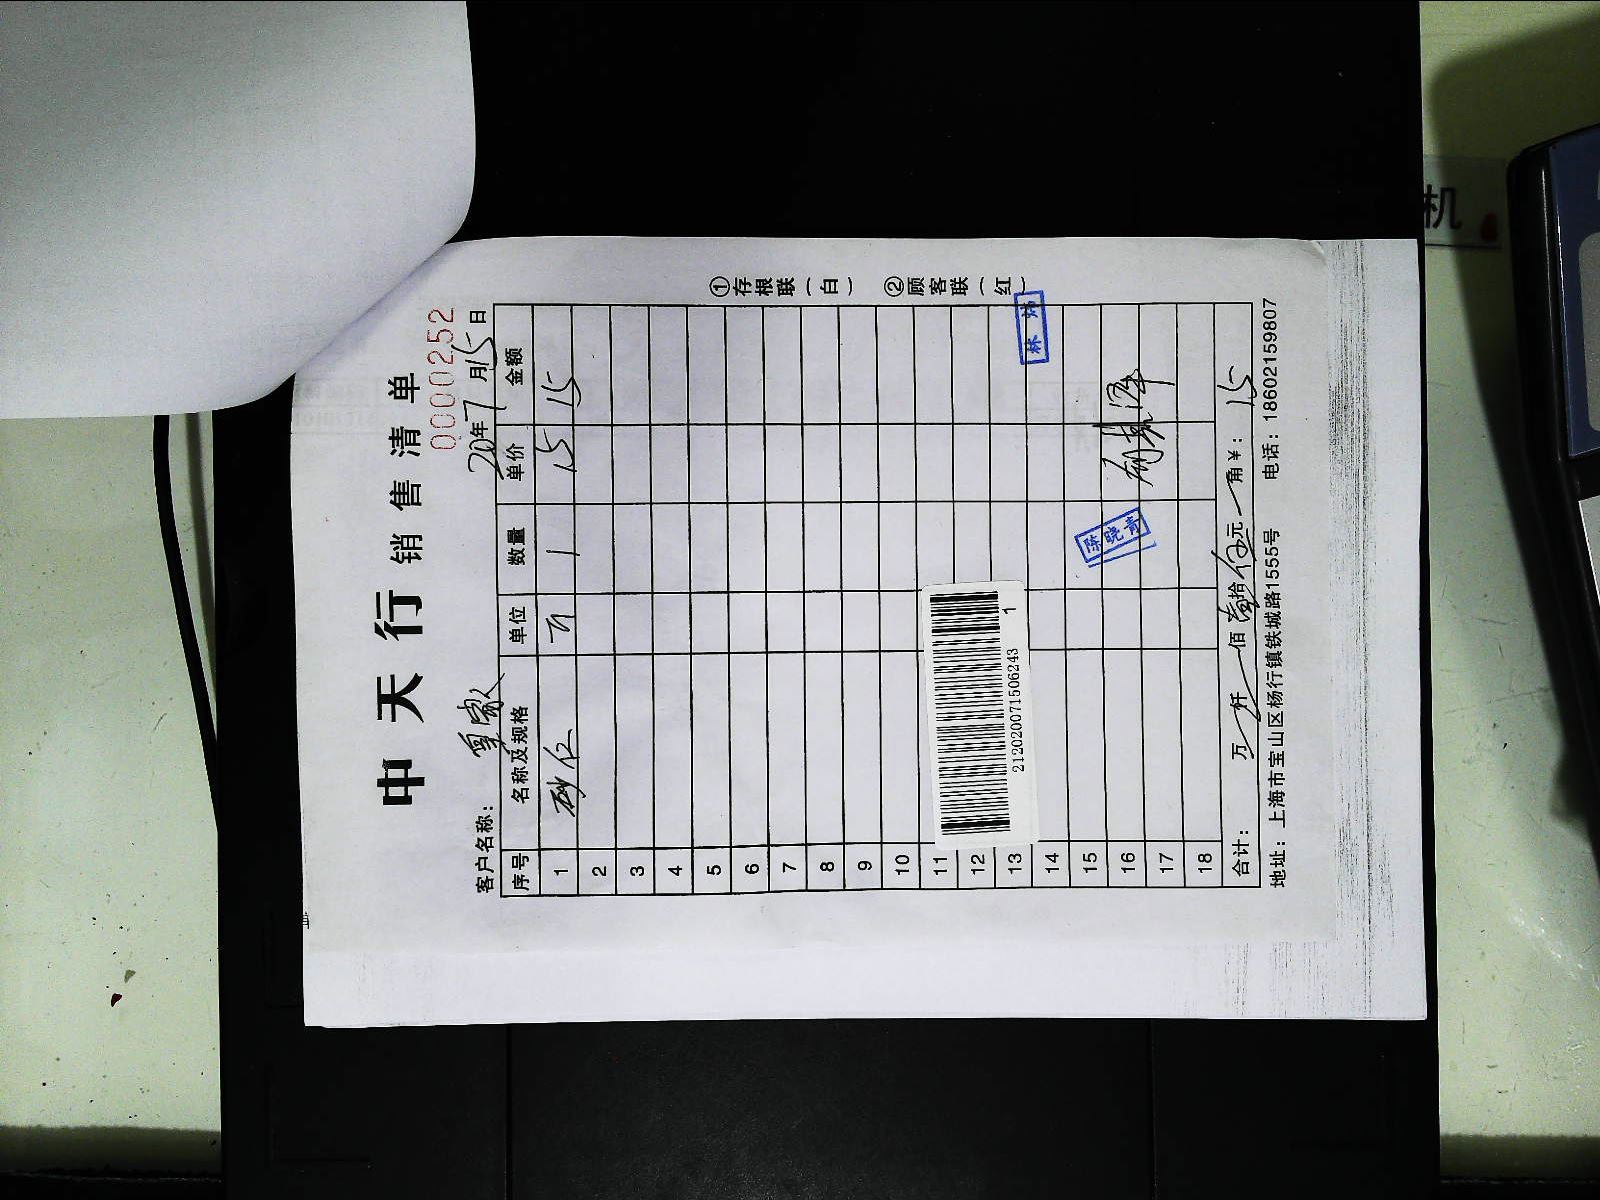 中天行 销售清单
0000252
客户名称：
20年7月15日
序号 名称及规格 单位 数量 单价 金额
1 砂仁 1 15 15
2
3
4
5
6
7
8
9
10
11
12
13
14
15
16
17
18
212020071506243 1
林炜
陈晓青
合计： 万 仟 佰 壹拾伍元 角 ¥：15
地址：上海市宝山区杨行镇铁城路1555号 电话：18602159807
①存根联（白） ②顾客联（红）
机